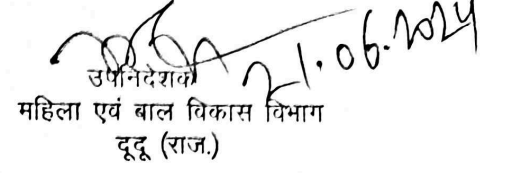 21.06.2024
उपनिदेशक
महिला एवं बाल विकास विभाग
दूदू (राज.)